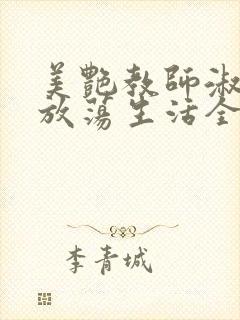 美艷教師淑
放蕩生活全
李青城